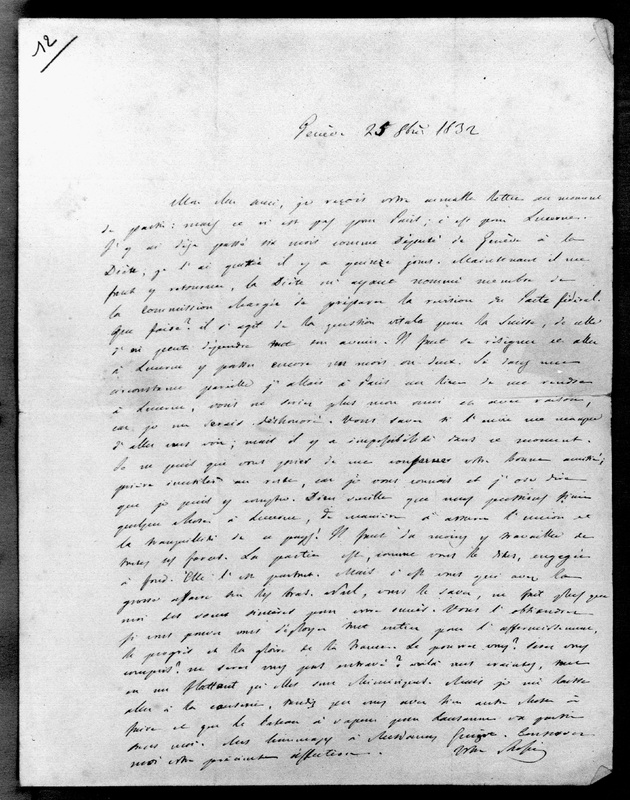 12
Genève 25 8bre 1832
Mon cher ami, je reçois votre aimable lettre au moment
de partir: mais ce n'est pas pour Paris; c'est pour Lucerne.
J'y ai déja passé six mois comme Député de Genève à la
Diète, je l'ai quittée il y a quinze jours. Maintenant il me
faut y retourner, la Diète m'ayant nommé membre de
la commission chargée de préparer la révision du Pacte fédéral.
Que faire? il s'agit de la question vitale pour la Suisse, de celle
d'où peut dépendre tout son avenir. Il faut se résigner et aller
à Lucerne y passer encore un mois ou deux. Si dans une
circonstance pareille j'allais à Paris au lieu de me rendre
à Lucerne, vous ne seriez plus mon ami et avec raison,
car je me serais déshonoré. Vous savez si l'envie me manque
d'aller vous voir; mais il y a impossibilité dans ce moment.
Je ne puis que vous prier de me conserver votre bonne amitié;
prière inutile au reste, car je vous connais et j'ose dire
que je puis y compter. Dieu veuille que nous puissions finir
quelque chose à Lucerne, de manière à assurer l'union et
la tranquillité de ce pays! Il faut du moins y travailler de
toutes ses forces. La partie est, comme vous le dites, engagée
à fond. Elle l'est partout. Mais c'est vous qui avez la
grosse affaire sur les bras. Nul, vous le savez, ne fait plus que
moi des voeux sincères pour votre succès. Vous l'obtiendrez
si vous pouvez vous déployer tout entier pour l'affermissement,
le progrès et la gloire de la France. Le pourrez vous? serez vous
compris? ne serez vous pas entravé? voilà mes craintes, tout
en me flattant qu'elles sont chimériques. Mais je me laisse
aller à la causerie, tandis que vous avez bien autre chose à
faire et que le bateau à vapeur pour Lausanne va partir
sans moi. Mes hommages à Mesdames Guizot. Conservez
moi votre précieuse affection. Votre